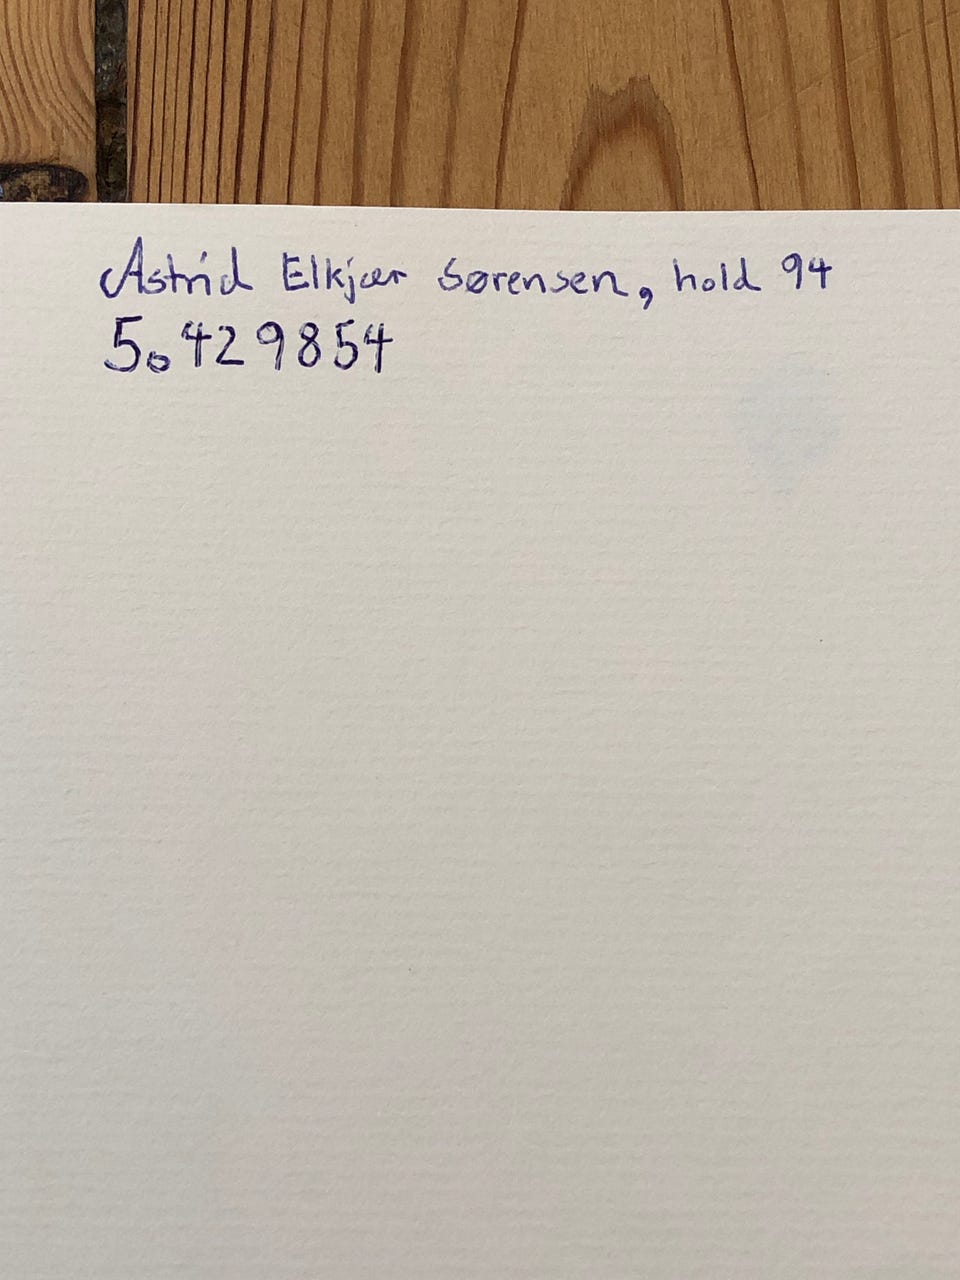 Astrid Elkjær Sørensen, hold 94
5.429854